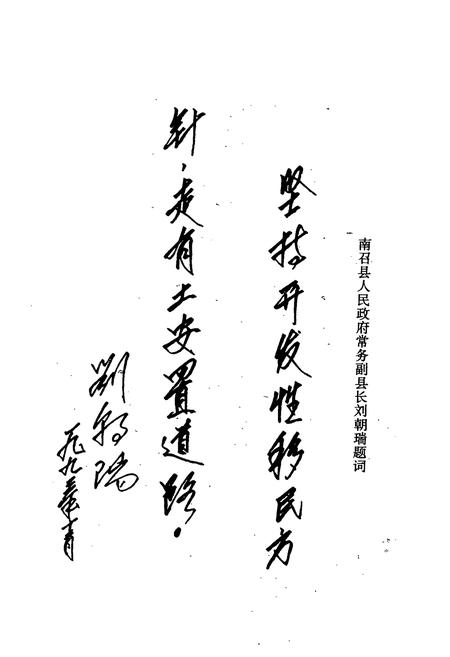 南召县人民政府常务副县长刘朝瑞题词
坚持开发性移民方
针，走有土安置道路。
劉朝瑞
一九九三年十月